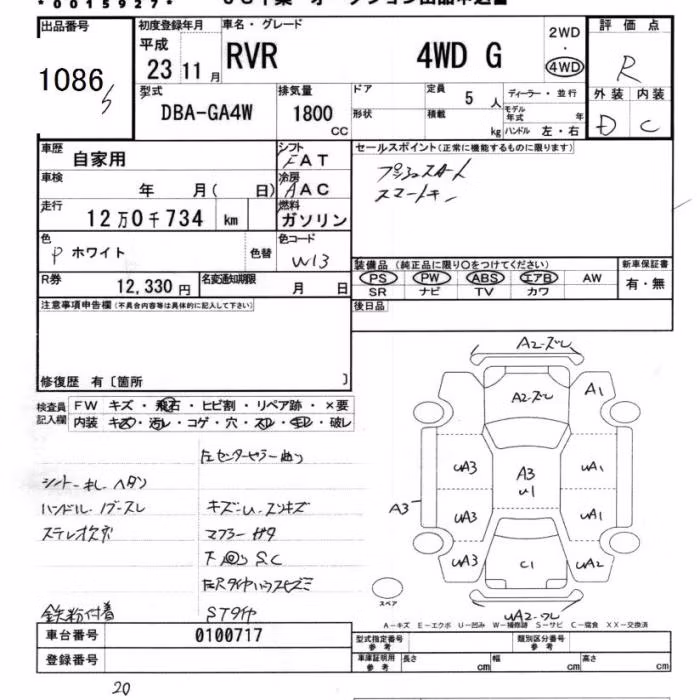 *0015927*
出品番号 初度登録年月 車名・グレード 2WD ・ 4WD 評価点
1086 平成 23年 11月 RVR 4WD G R
型式 排気量 ドア 定員 5人 ディーラー・並行 外装 内装
DBA-GA4W 1800 CC 形状 積載 kg モデル年式 年 ハンドル 左・右 D C
車歴 自家用 シフト FAT セールスポイント(正常に機能するものに限ります)
車検 年 月( 日) 冷房 AAC プッシュスタート
スマートキー
走行 12万0千734 km 燃料 ガソリン
色 P ホワイト 色替 色コード W13
装備品(純正品に限り○をつけてください) 新車保証書
PS PW ABS エアB AW 有・無
SR ナビ TV カワ
R券 12,330円 名変通知期限 月 日
注意事項申告欄(不具合内容等は具体的に記入して下さい) 後日品
修復歴 有〔箇所 〕
検査員記入欄 FW キズ・飛石・ヒビ割・リペア跡・×要
内装 キズ・汚レ・コゲ・穴・スレ・モレ・破レ
シートキレ ヘタリ
ハンドル
キズ・U・スリキズ
マフラー サビ
S.C
鉄粉付着 STタイヤ
A2-ズレ
A2-ズレ A1
UA3 A3 U1 UA1
A3 UA3 UA1
UA3 C1 UA2
スペア
UA2-ワレ
A-キズ E-エクボ U-凹み W-補修跡 S-サビ C-腐食 XX-交換済
車台番号 0100717 型式指定番号 参考 類別区分番号 参考
登録番号 車庫証明用 参考 長さ cm 幅 cm 高さ cm
20